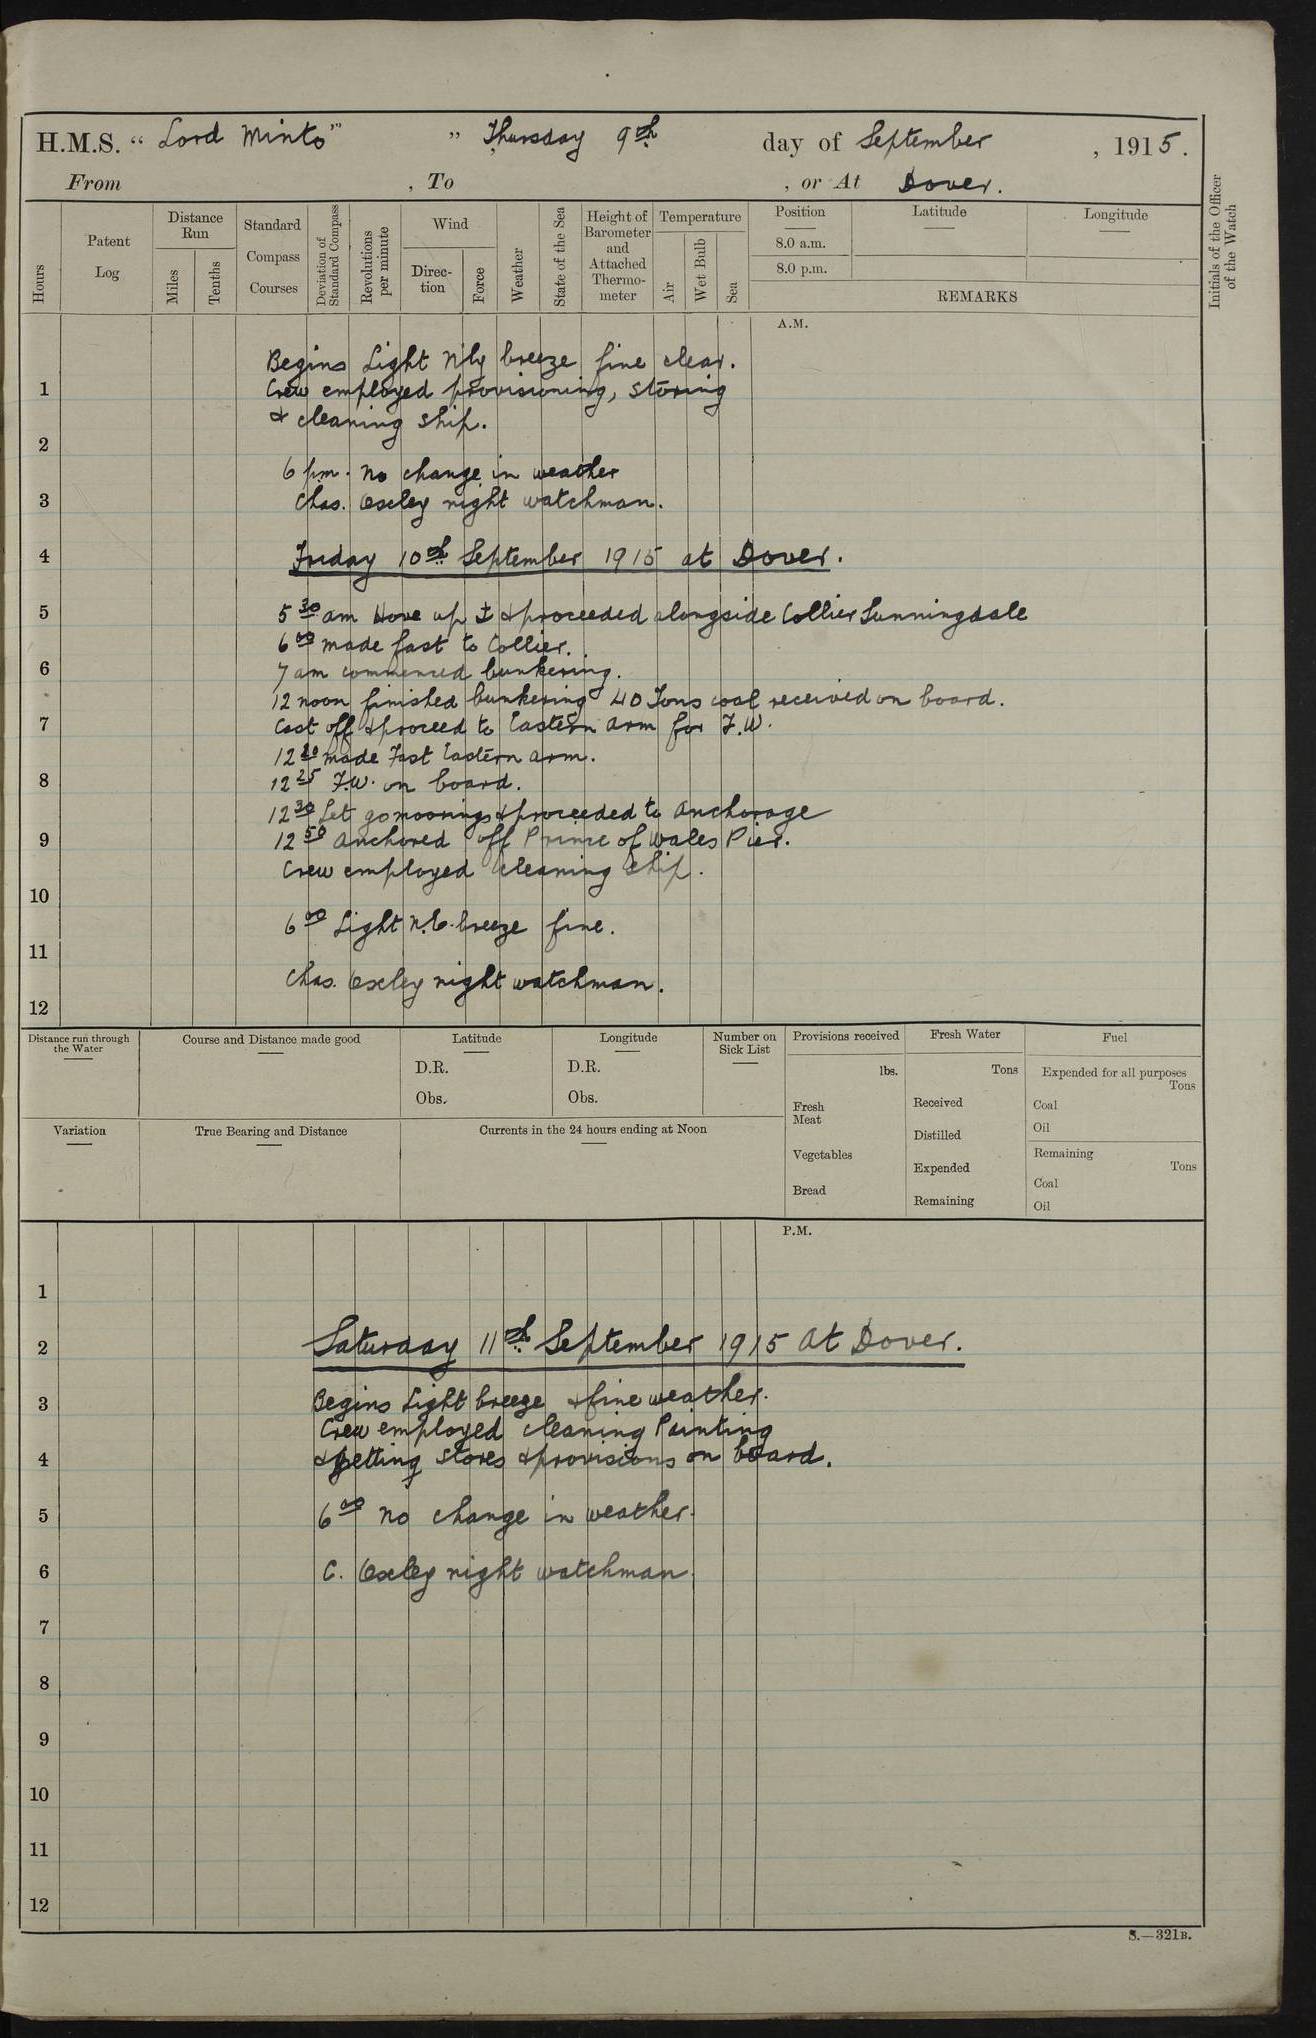 H.M.S. “ Lord Minto” ” Thursday 9th day of September , 1915.
From , To , or At Dover.
Hours
Patent Log
Distance Run
Miles
Tenths
Standard Compass Courses
Deviation of Standard Compass
Revolutions per minute
Wind
Direc-tion
Force
Weather
State of the Sea
Height of Barometer and Attached Thermo-meter
Temperature
Air
Wet Bulb
Sea
Position
8.0 a.m.
8.0 p.m.
Latitude
Longitude
REMARKS
Initials of the Officer of the Watch
A.M.
Begins Light Nly breeze fine clear.
1
Crew employed provisioning, storing
& cleaning ship.
2
6 p.m. No change in weather
3
Chas. Oxley night watchman.
4
Friday 10th September 1915 at Dover.
5
5 30 am Hove up ⚓ & proceeded alongside Collier Sunningdale
6 00 made fast to Collier.
6
7 am commenced bunkering.
12 noon finished bunkering 40 Tons coal received on board.
7
Cast off & proceed to Eastern arm for F.W.
12 20 made Fast Eastern arm.
8
12 25 F.W. on board.
12 30 Let go moorings & proceeded to anchorage
9
12 50 Anchored off Prince of Wales Pier.
Crew employed cleaning ship.
10
6 00 Light N.E. breeze fine.
11
Chas. Oxley night watchman.
12
Distance run through the Water
Course and Distance made good
Latitude
D.R.
Obs.
Longitude
D.R.
Obs.
Number on Sick List
Provisions received
lbs.
Fresh Meat
Vegetables
Bread
Fresh Water
Tons
Received
Distilled
Expended
Remaining
Fuel
Expended for all purposes
Tons
Coal
Oil
Remaining
Tons
Coal
Oil
Variation
True Bearing and Distance
Currents in the 24 hours ending at Noon
P.M.
1
2
Saturday 11th September 1915 At Dover.
3
Begins Light breeze & fine weather.
Crew employed cleaning Painting
4
& getting stores & provisions on board.
5
6 00 No change in weather.
6
C. Oxley night watchman.
7
8
9
10
11
12
S.—321B.